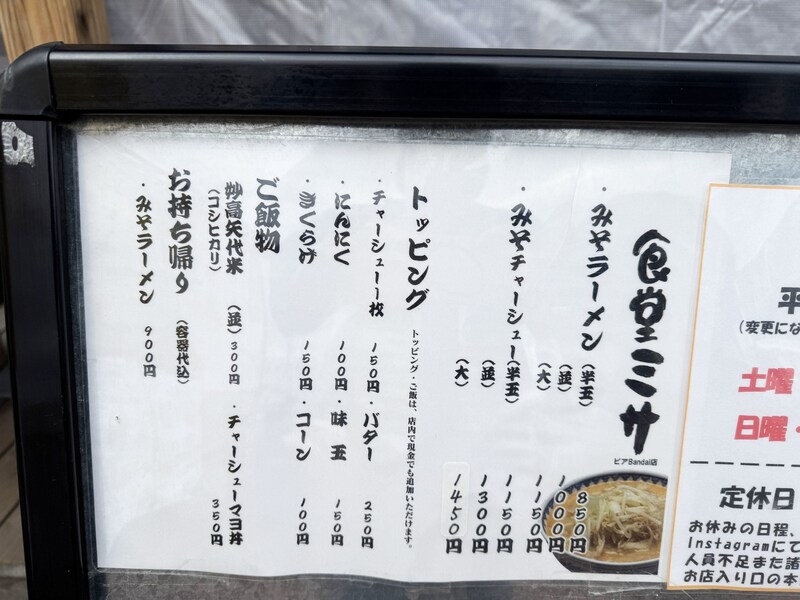 食堂ミサ
ピアBandai店
・みそラーメン（半玉）850円
（並）1000円
（大）1150円
・みそチャーシュー（半玉）1150円
（並）1300円
（大）1450円
トッピング
トッピング・ご飯は、店内で現金でも追加いただけます。
・チャーシュー1枚 150円・バター 250円
・にんにく 100円・味玉 150円
・きくらげ 150円・コーン 100円
ご飯物
妙高矢代米（並）300円・チャーシューマヨ丼 350円
（コシヒカリ）
お持ち帰り（容器代込）
・みそラーメン 900円
平
（変更にな
土曜
日曜・
定休日
お休みの日程、
Instagramにて
人員不足また諸
お店入り口の本